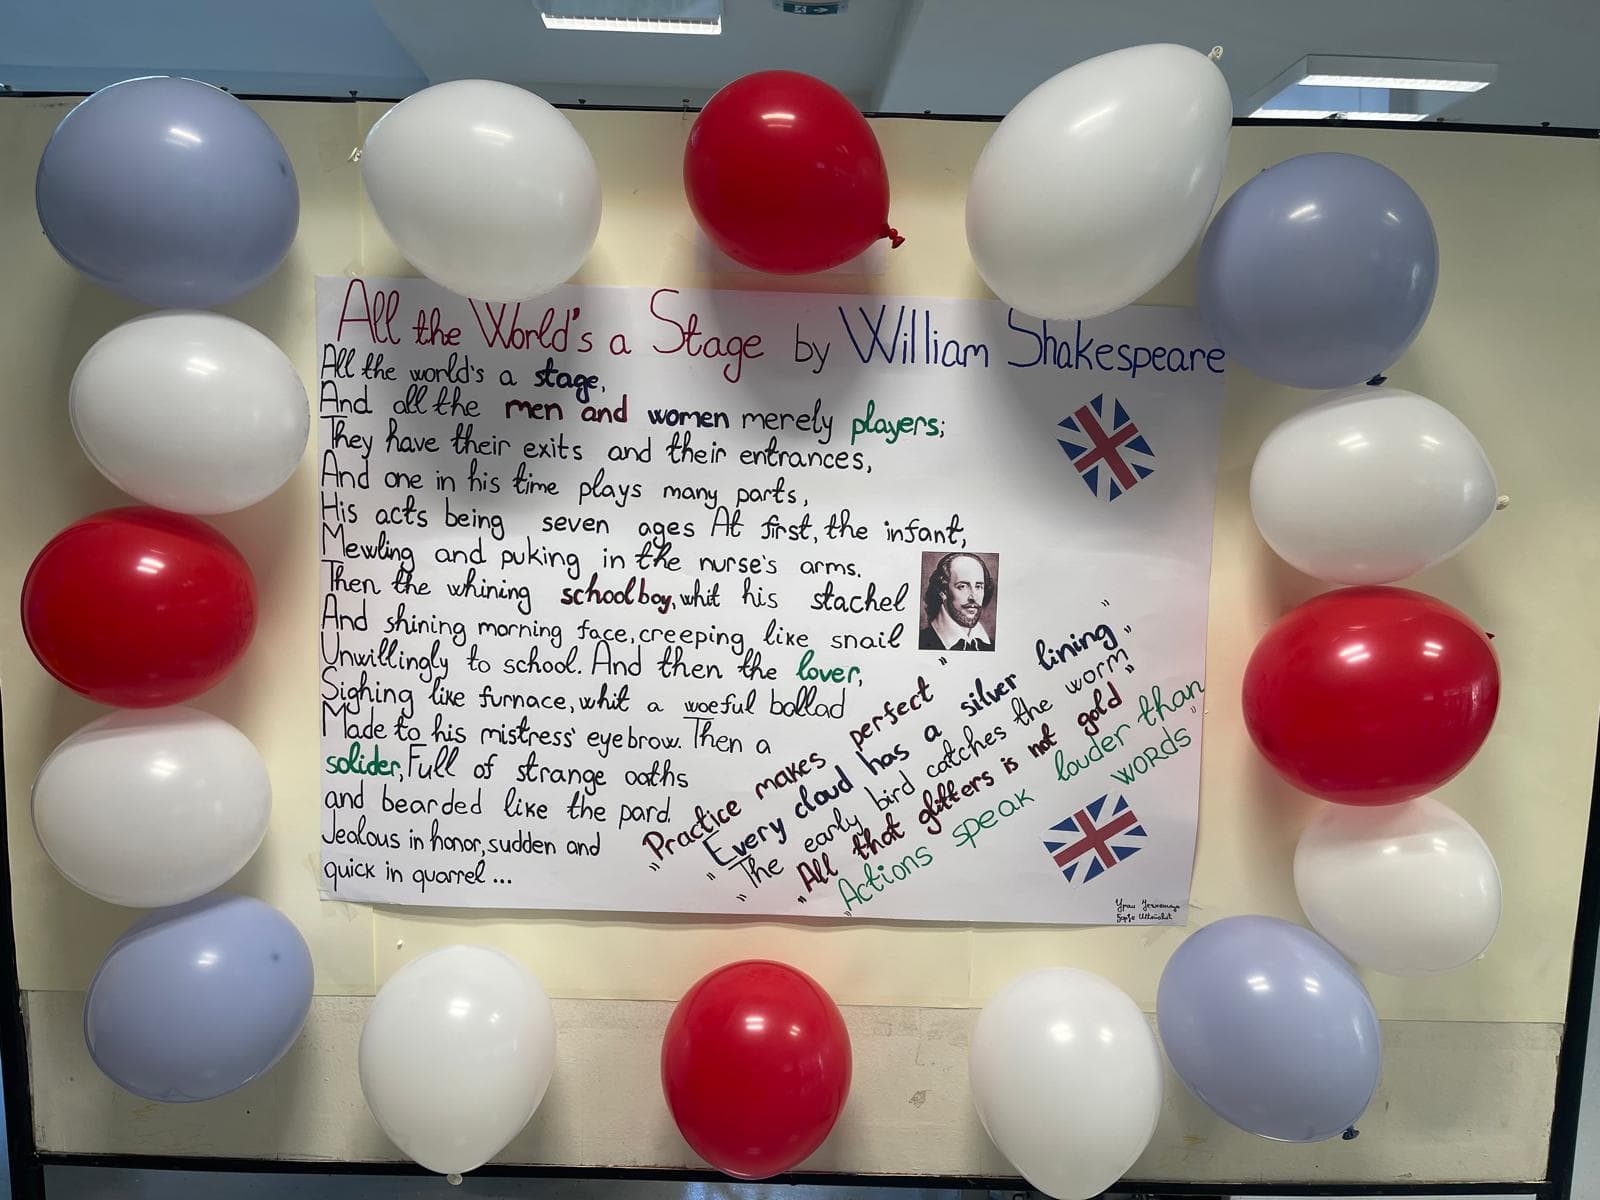 All the World's a Stage by William Shakespeare
All the world's a stage,
And all the men and women merely players;
They have their exits and their entrances,
And one in his time plays many parts,
His acts being seven ages At first, the infant,
Mewling and puking in the nurse's arms.
Then the whining schoolboy, whit his stachel
And shining morning face, creeping like snail
Unwillingly to school. And then the lover,
Sighing like furnace, whit a woeful ballad
Made to his mistress' eyebrow. Then a
solider, Full of strange oaths
and bearded like the pard.
Jealous in honor, sudden and
quick in quarrel ...
"Practice makes perfect"
"Every cloud has a silver lining"
"The early bird catches the worm"
"All that glitters is not gold"
"Actions speak louder than
words"